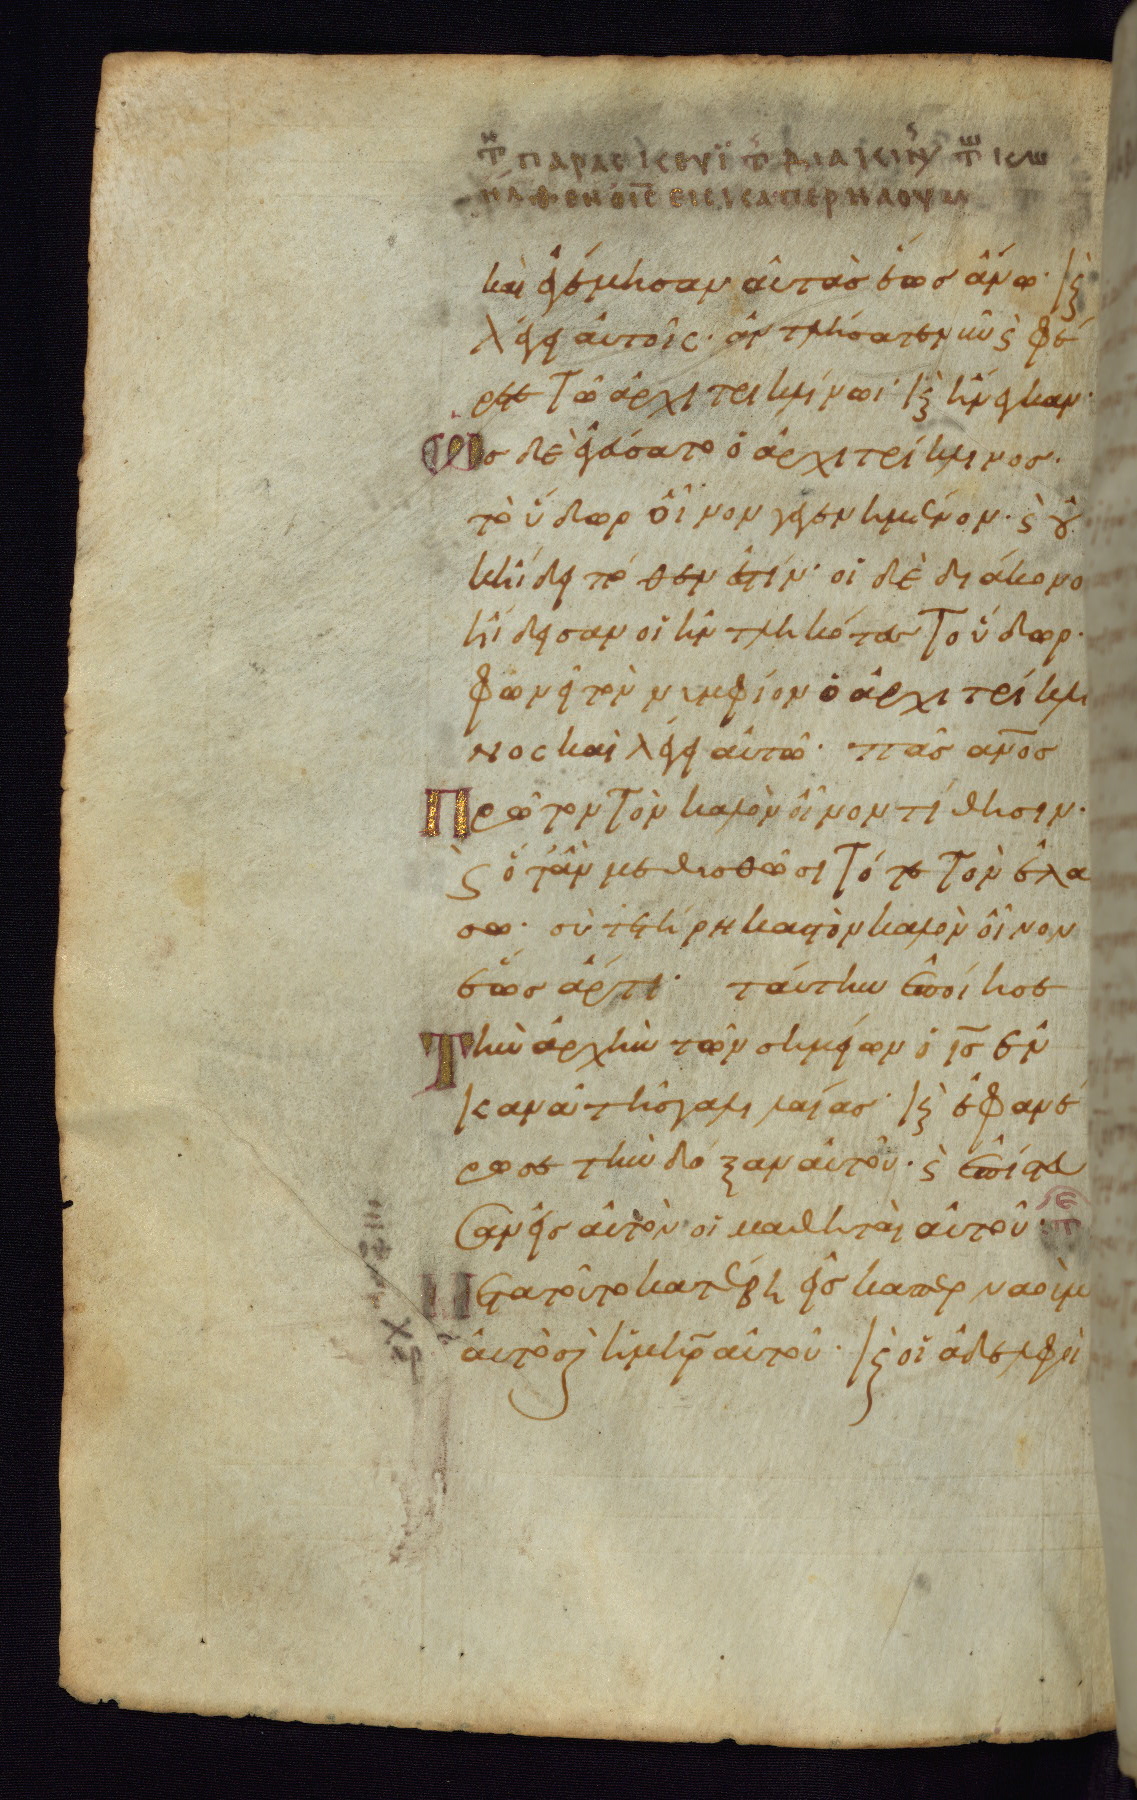 τῇ παρασκευῇ τῆς διακινη τω ι
κ ἐγέμησαν αὐτὰς ἕως ἄνω· κ
λέγει αὐτοῖς· ἀντλήσατε νῦν ϛ φέ
ρετε τῶ ἀρχιτρικλίνωι· κ ἤνεγκαν·
Ὡς δὲ ἐγεύσατο ὁ ἀρχιτρίκλινος·
τὸ ὕδωρ οἶνον γεγενημένον· ϛ οὐ
κ ἤιδει πόθεν ἐστίν· οἱ δὲ διάκονο
ἤιδεισαν οἱ ἠντληκότες το ὕδωρ·
φωνεῖ τὸν νυμφίον ὁ ἀρχιτρίκλι
νος καὶ λέγει αὐτῶ· πᾶς ανος
Πρῶτον τὸν καλὸν οἶνον τίθησιν·
ϛ ὅταν μεθυσθῶσι τότε τὸν ἐλα
σω· σὺ τετήρηκας τὸν καλὸν οἶνον
ἕως ἄρτι· ταύτην ἐποίησε
Τὴν ἀρχὴν τῶν σημείων ὁ ις ἐν
κανᾶ τῆς γαλιλαίας· κ ἐφανέ
ρωσε τὴν δόξαν αὐτοῦ· ϛ ἐπίστευ
σαν εἰς αὐτὸν οἱ μαθηταὶ αὐτοῦ·
Μετα τοῦτο κατέβη εἰς καπερναοὺμ
αὐτὸς ϛ ἡ μηρ αὐτοῦ· κ οἱ ἀδελφοὶ